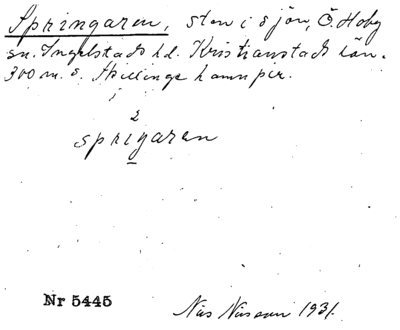 Springaren, sten i sjön, Ö. Hoby
sn. Ingelstads hd. Kristianstads län.
300 m. s. Skillinge hamnpir.
2
sprigaren
Nr 5445
Nils Nilsson 1931.